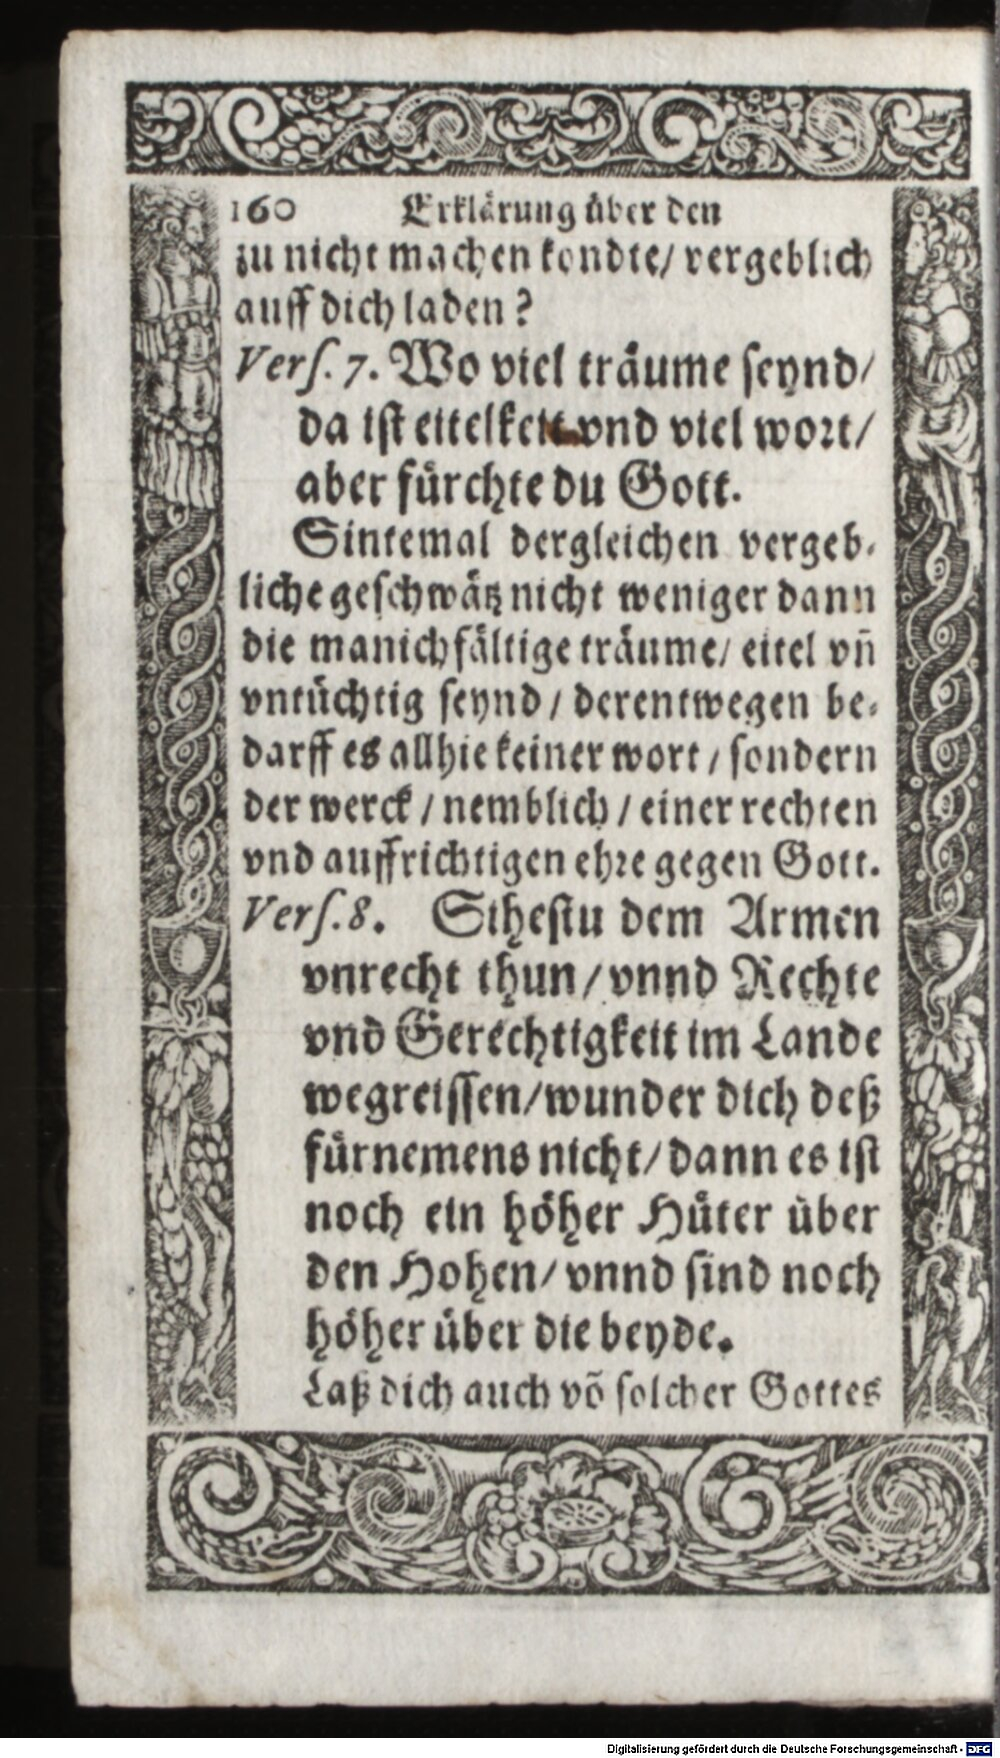 160 Erklärung über den
zu nicht machen kondte/ vergeblich
auff dich laden?
Verſ. 7. Wo viel träume ſeynd/
da iſt eitelkeit vnd viel wort/
aber fürchte du Gott.
Sintemal dergleichen vergeb-
liche geſchwätz nicht weniger dann
die manichfältige träume/ eitel vn̄
vntüchtig ſeynd/ derentwegen be-
darff es allhie keiner wort/ ſondern
der werck/ nemblich/ einer rechten
vnd auffrichtigen ehre gegen Gott.
Verſ. 8. Siheſtu dem Armen
vnrecht thun/ vnnd Rechte
vnd Gerechtigkeit im Lande
wegreiſſen/ wunder dich deß
fürnemens nicht/ dann es iſt
noch ein höher Hüter über
den Hohen/ vnnd ſind noch
höher über die beyde.
Laß dich auch võ ſolcher Gottes
Digitalisierung gefördert durch die Deutsche Forschungsgemeinschaft - DFG